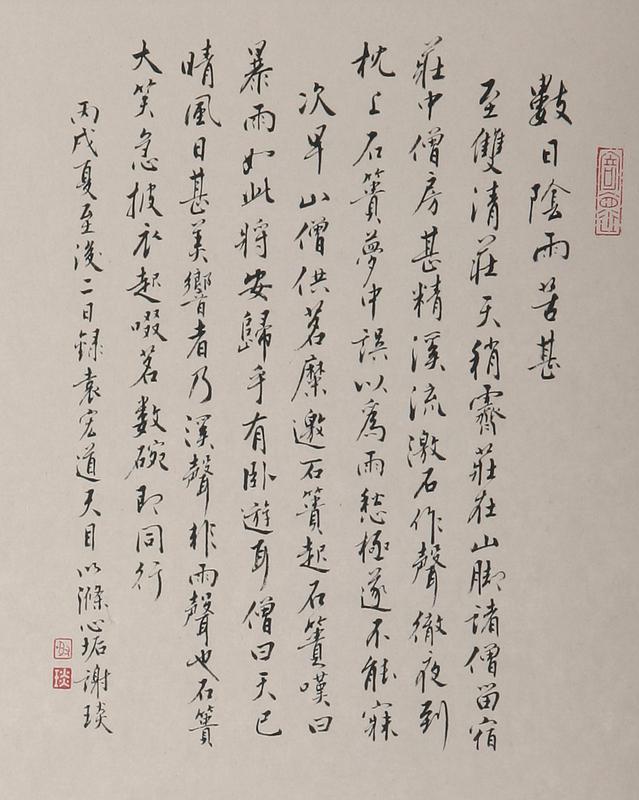 數日陰雨苦甚
至雙清莊天稍霽莊在山脚諸僧留宿
莊中僧房甚精溪流激石作聲徹夜到
枕上石簣夢中誤以爲雨愁極遂不能寐
次早山僧供茗糜邀石簣起石簣嘆曰
暴雨如此將安歸乎有卧遊耳僧曰天已
晴風日甚美響者乃溪聲非雨聲也石簣
大笑急披衣起啜茗數碗即同行
丙戌夏至後二日録袁宏道天目以滌心垢謝琰